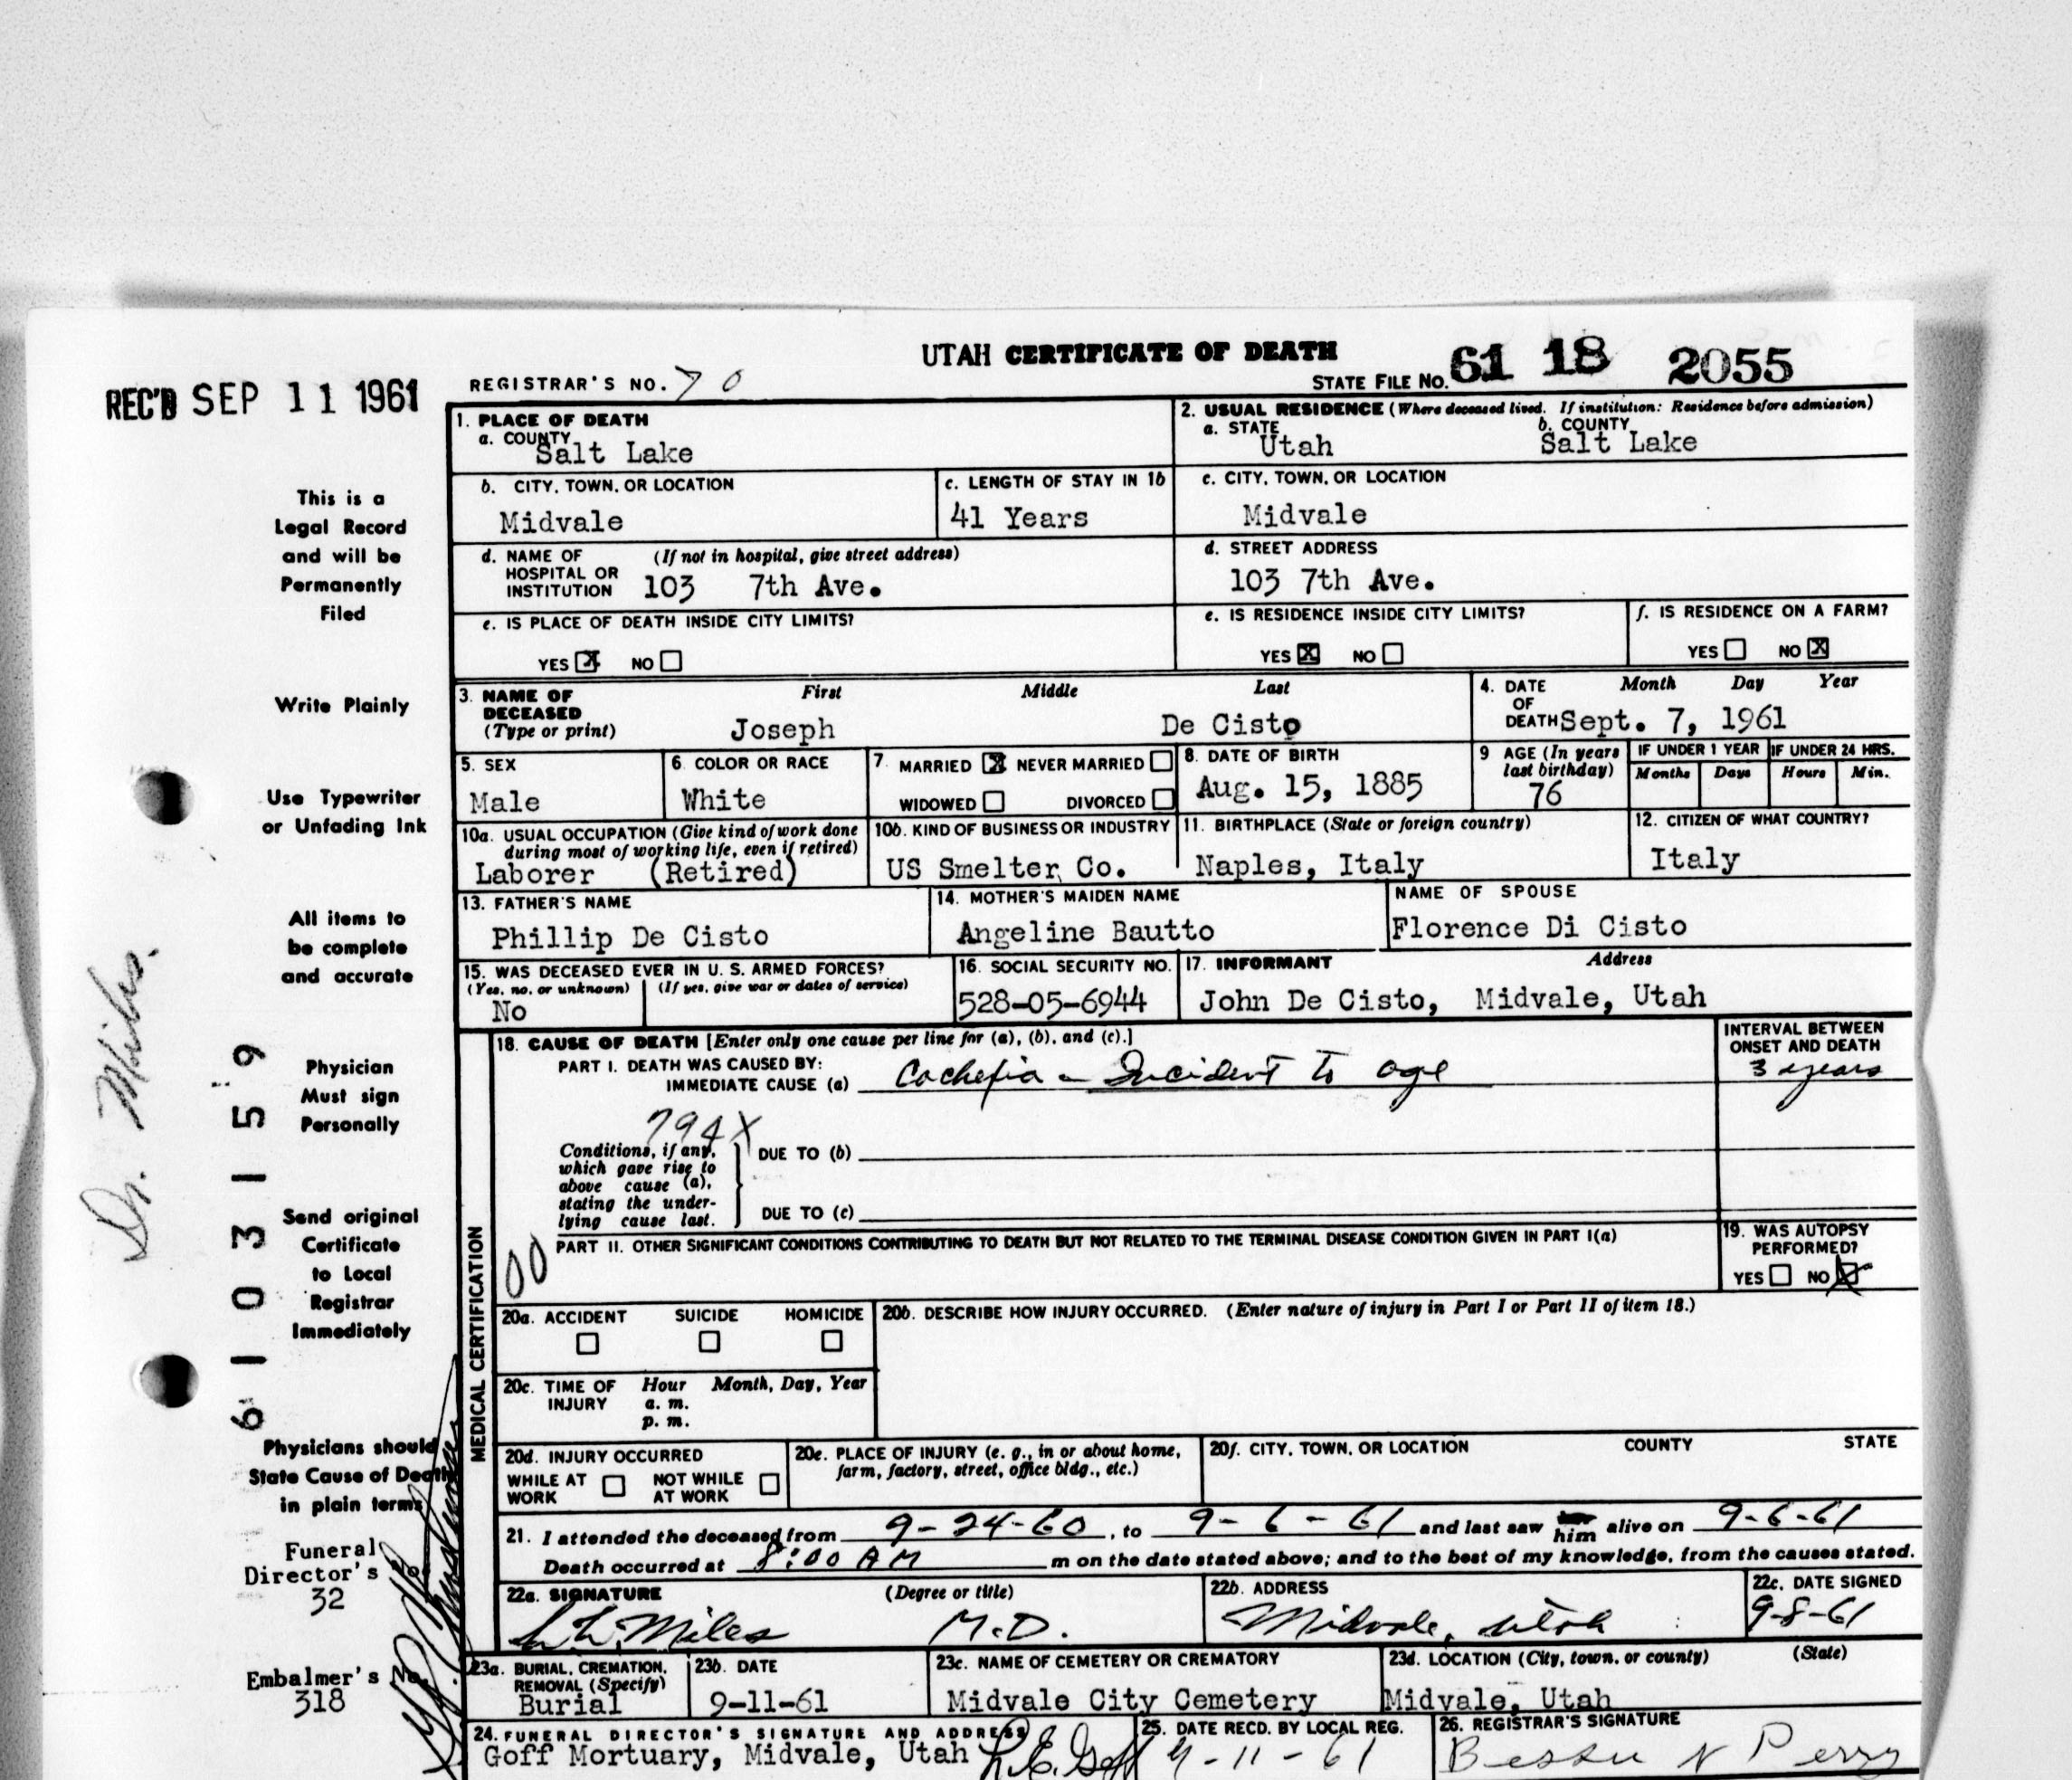 UTAH CERTIFICATE OF DEATH
REC'D SEP 11 1961
REGISTRAR'S NO. 70
STATE FILE No. 61 18 2055
1. PLACE OF DEATH
a. COUNTY
Salt Lake
2. USUAL RESIDENCE (Where deceased lived. If institution: Residence before admission)
a. STATE b. COUNTY
Utah Salt Lake
b. CITY, TOWN, OR LOCATION
Midvale
c. LENGTH OF STAY IN 1b
41 Years
c. CITY, TOWN, OR LOCATION
Midvale
d. NAME OF (If not in hospital, give street address)
HOSPITAL OR
INSTITUTION 103 7th Ave.
d. STREET ADDRESS
103 7th Ave.
e. IS PLACE OF DEATH INSIDE CITY LIMITS?
YES X NO
e. IS RESIDENCE INSIDE CITY LIMITS?
YES X NO
f. IS RESIDENCE ON A FARM?
YES NO X
3. NAME OF First Middle Last
DECEASED
(Type or print) Joseph De Cisto
4. DATE Month Day Year
OF
DEATH Sept. 7, 1961
5. SEX
Male
6. COLOR OR RACE
White
7. MARRIED X NEVER MARRIED
WIDOWED DIVORCED
8. DATE OF BIRTH
Aug. 15, 1885
9 AGE (In years
last birthday)
76
IF UNDER 1 YEAR IF UNDER 24 HRS.
Months Days Hours Min.
10a. USUAL OCCUPATION (Give kind of work done
during most of working life, even if retired)
Laborer (Retired)
10b. KIND OF BUSINESS OR INDUSTRY
US Smelter Co.
11. BIRTHPLACE (State or foreign country)
Naples, Italy
12. CITIZEN OF WHAT COUNTRY?
Italy
13. FATHER'S NAME
Phillip De Cisto
14. MOTHER'S MAIDEN NAME
Angeline Bautto
NAME OF SPOUSE
Florence Di Cisto
15. WAS DECEASED EVER IN U. S. ARMED FORCES?
(Yes, no, or unknown) (If yes, give war or dates of service)
No
16. SOCIAL SECURITY NO.
528-05-6944
17. INFORMANT Address
John De Cisto, Midvale, Utah
MEDICAL CERTIFICATION
18. CAUSE OF DEATH [Enter only one cause per line for (a), (b), and (c).]
INTERVAL BETWEEN
ONSET AND DEATH
PART I. DEATH WAS CAUSED BY:
IMMEDIATE CAUSE (a) Cachexia - Incident to age
3 years
794X
Conditions, if any,
which gave rise to
above cause (a),
stating the under-
lying cause last.
DUE TO (b)
DUE TO (c)
00
PART II. OTHER SIGNIFICANT CONDITIONS CONTRIBUTING TO DEATH BUT NOT RELATED TO THE TERMINAL DISEASE CONDITION GIVEN IN PART I(a)
19. WAS AUTOPSY
PERFORMED?
YES NO X
20a. ACCIDENT SUICIDE HOMICIDE
20b. DESCRIBE HOW INJURY OCCURRED. (Enter nature of injury in Part I or Part II of item 18.)
20c. TIME OF Hour Month, Day, Year
INJURY a. m.
p. m.
20d. INJURY OCCURRED
WHILE AT NOT WHILE
WORK AT WORK
20e. PLACE OF INJURY (e. g., in or about home,
farm, factory, street, office bldg., etc.)
20f. CITY, TOWN, OR LOCATION COUNTY STATE
21. I attended the deceased from 9-24-60, to 9-6-61 and last saw him alive on 9-6-61
Death occurred at 8:00 AM m on the date stated above; and to the best of my knowledge, from the causes stated.
22a. SIGNATURE (Degree or title)
Miles M.D.
22b. ADDRESS
Midvale, Utah
22c. DATE SIGNED
9-8-61
23a. BURIAL, CREMATION,
REMOVAL (Specify)
Burial
23b. DATE
9-11-61
23c. NAME OF CEMETERY OR CREMATORY
Midvale City Cemetery
23d. LOCATION (City, town, or county) (State)
Midvale, Utah
24. FUNERAL DIRECTOR'S SIGNATURE AND ADDRESS
Goff Mortuary, Midvale, Utah R.E. Goff
25. DATE RECD. BY LOCAL REG.
9-11-61
26. REGISTRAR'S SIGNATURE
N Perry
This is a
Legal Record
and will be
Permanently
Filed
Write Plainly
Use Typewriter
or Unfading Ink
All items to
be complete
and accurate
Physician
Must sign
Personally
Send original
Certificate
to Local
Registrar
Immediately
Physicians should
State Cause of Death
in plain terms
Funeral
Director's No.
32
Embalmer's No.
318
Dr. Miles.
6103159